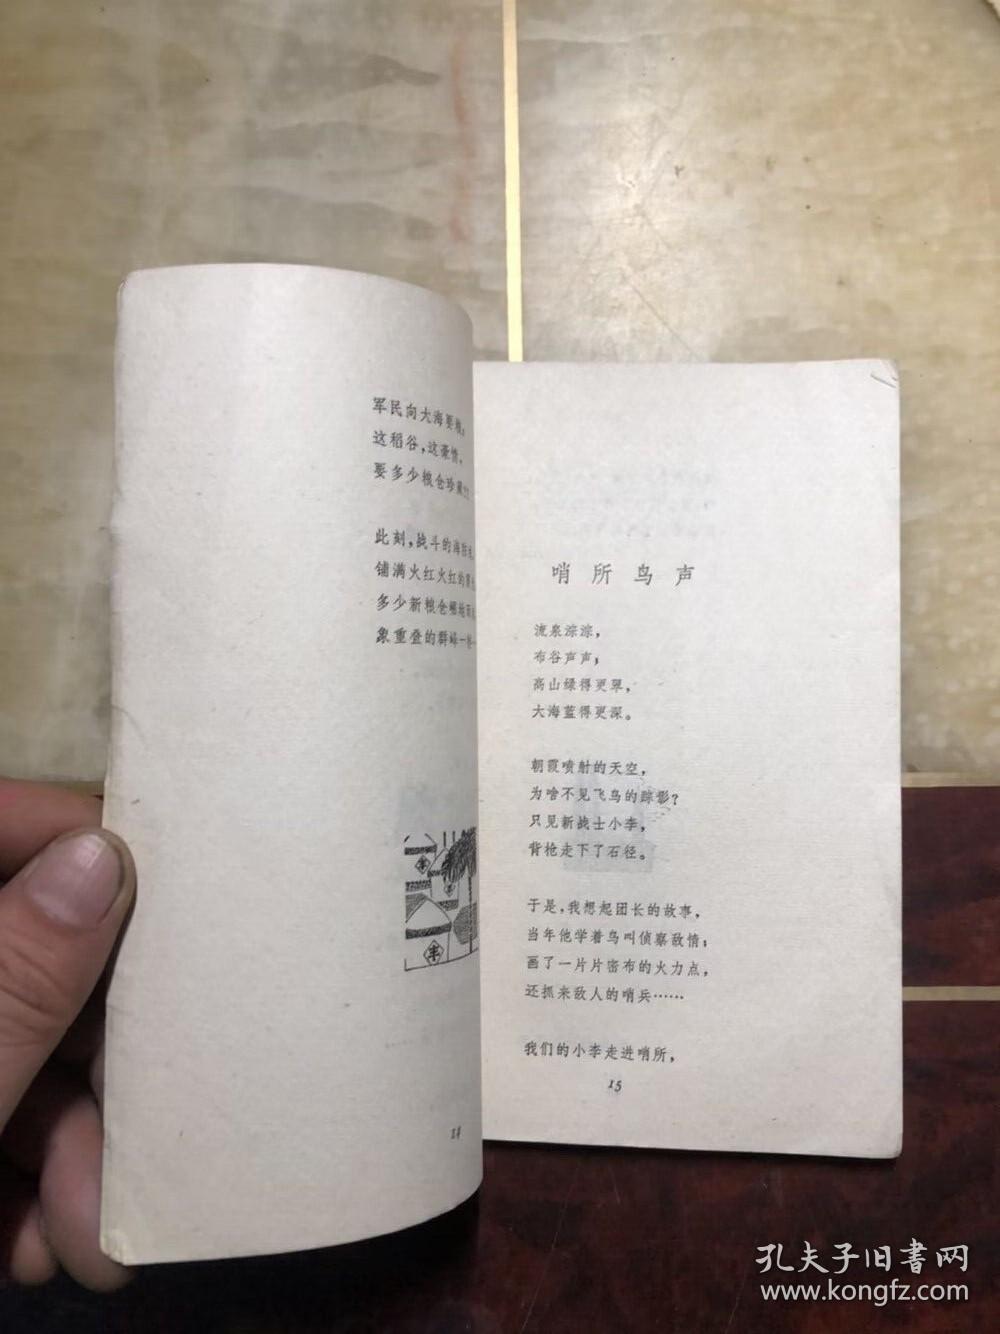 军民向大海要粮,
这稻谷,这豪情,
要多少粮仓珍藏
此刻,战斗的海
铺满火红火红的
多少新粮仓
象重叠的群峰一
丰
丰
丰
14
哨所鸟声
流泉淙淙,
布谷声声;
高山绿得更翠,
大海蓝得更深。
朝霞喷射的天空,
为啥不见飞鸟的踪影?
只见新战士小李,
背枪走下了石径。
于是,我想起团长的故事,
当年他学着鸟叫侦察敌情;
画了一片片密布的火力点,
还抓来敌人的哨兵……
我们的小李走进哨所,
15
孔夫子旧書网
www.kongfz.com